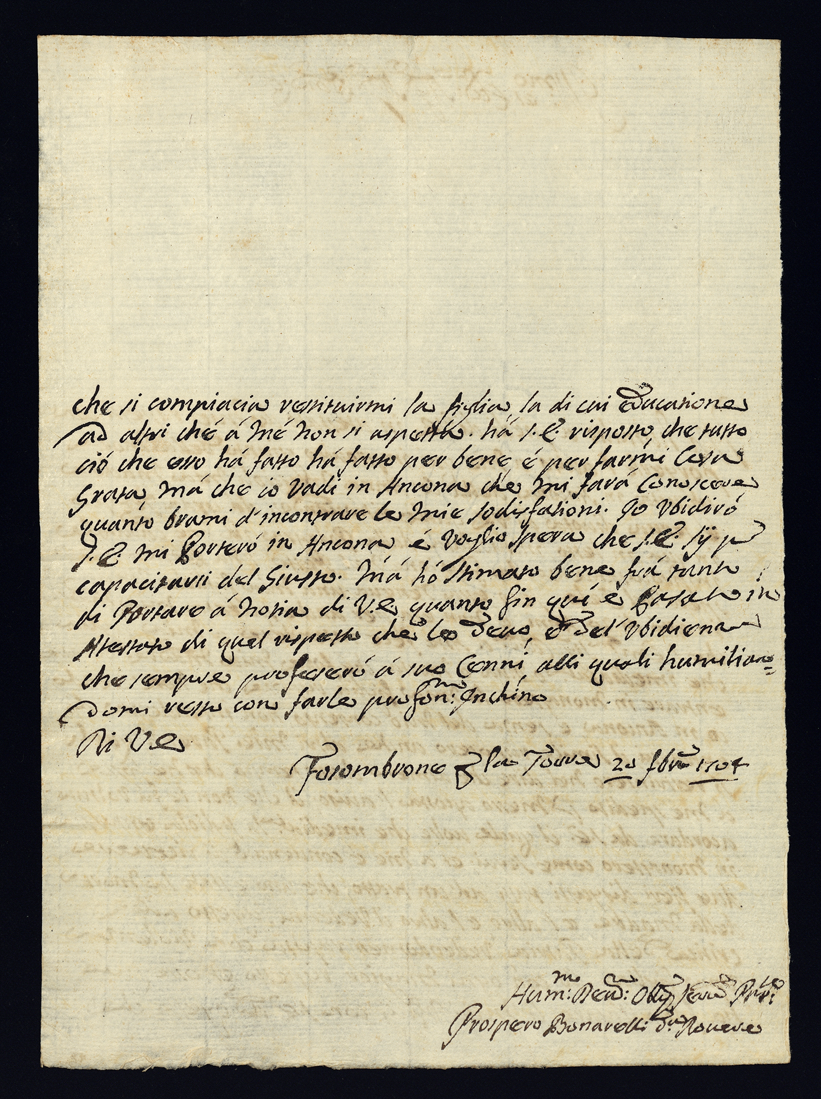 che si compiacia restituirmi la figlia la di cui educatione
ad altri ché á mé non si aspetta. há S.E. risposto che tutto
ció che esso há fatto há fatto per bene é per farmi Cosa
Grata má che io vadi in Ancona ché mi fará Conoscere
quanto brami d'incontrare le mie sodisfationi. Io Vbidiró
S.E. mi Porteró in Ancona é voglio spera che S.E. sij p
capacitarsi del Giusto. má hó stimato bene frá tanto
di Portare á notia di V.E. quanto fin qui é Pasato in
Attestato di quel rispetto che le devo, é del'Vbidienza
che sempre profeseró á suo Cenni, alli quali humilian=
domi resto con farle profon:ma Inchino
Di V.E.
Fosombrone la Torre 20 fbre 1704
Hum:mo Deu: Obb Seru
Prospero Bonarelli d Rouere